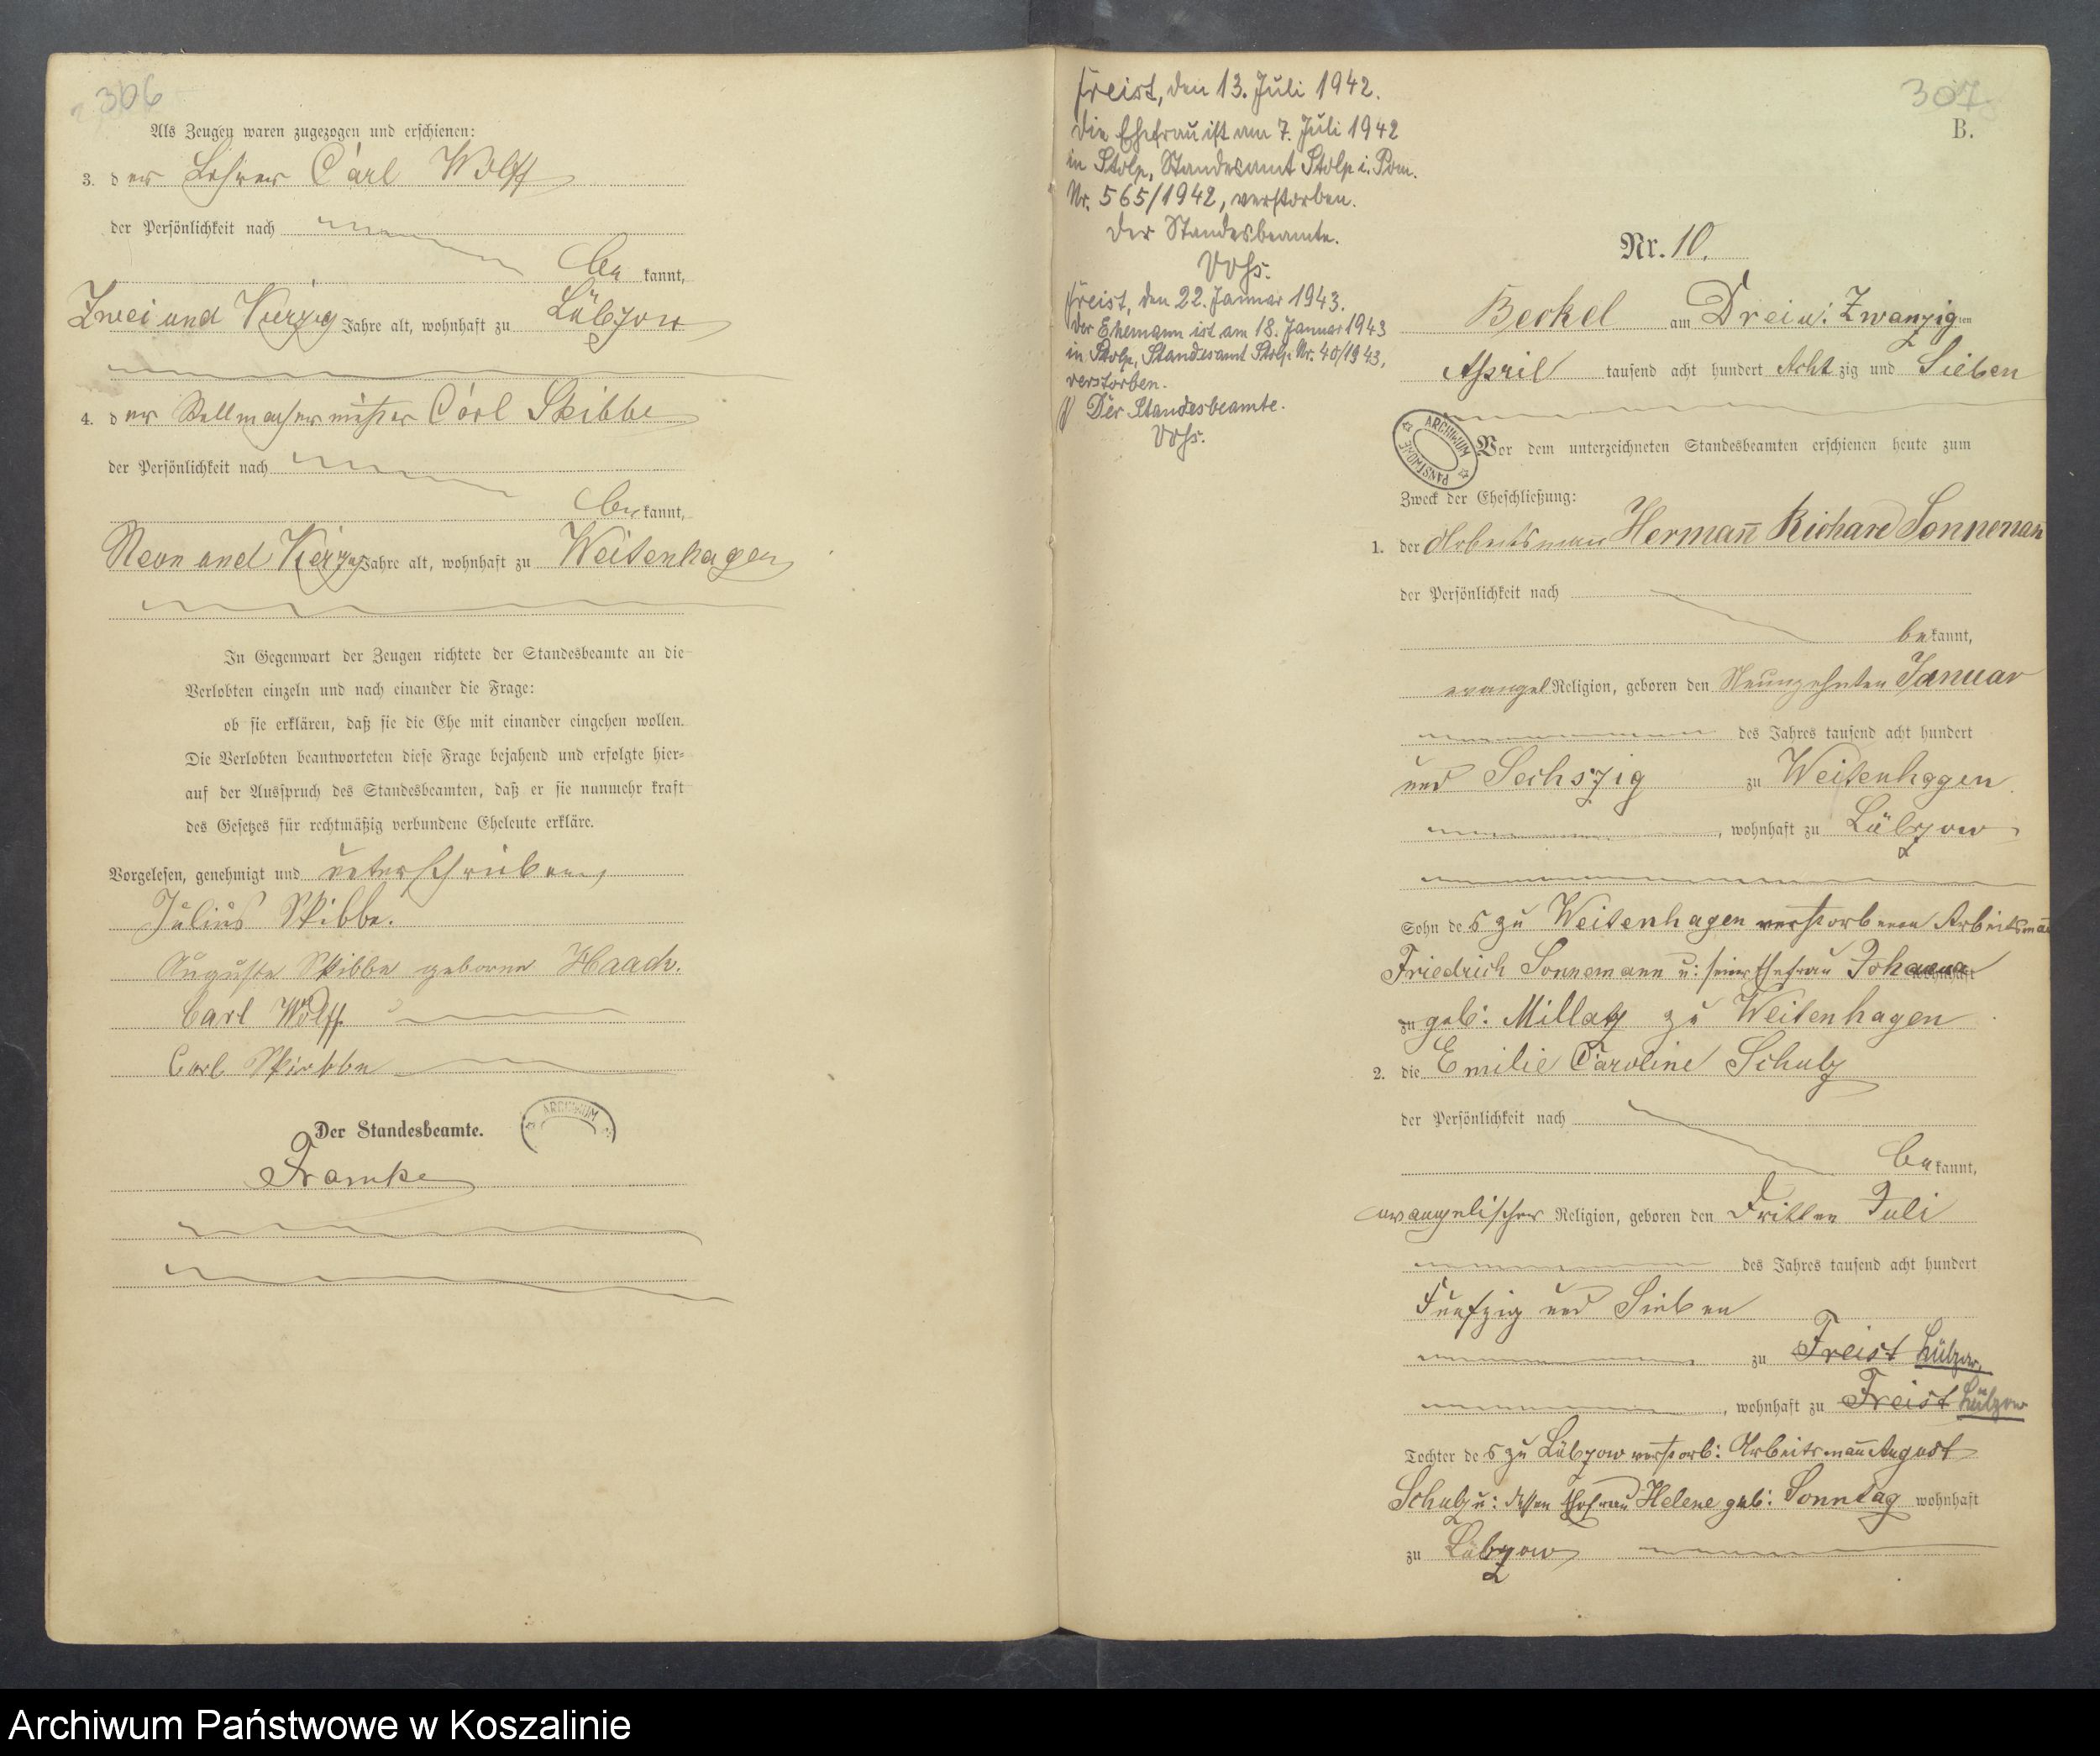 306
Als Zeugen waren zugezogen und erschienen:
3. der Lehrer Carl Wolff
der Persönlichkeit nach
be kannt,
Zwei und Vierzig Jahre alt, wohnhaft zu Lübzow
4. der Stellmachermeister Carl Skibbe
der Persönlichkeit nach
be kannt,
Neun und Vierzig Jahre alt, wohnhaft zu Weitenhagen
In Gegenwart der Zeugen richtete der Standesbeamte an die
Verlobten einzeln und nach einander die Frage:
ob sie erklären, daß sie die Ehe mit einander eingehen wollen.
Die Verlobten beantworteten diese Frage bejahend und erfolgte hier-
auf der Ausspruch des Standesbeamten, daß er sie nunmehr kraft
des Gesetzes für rechtmäßig verbundene Eheleute erkläre.
Vorgelesen, genehmigt und unterschrieben
Julius Skibbe.
Auguste Skibbe geborene Haack.
Carl Wolff
Carl Skibbe
Der Standesbeamte.
ARCHIWUM
Framke
Freist, den 13. Juli 1942.
Die Ehefrau ist am 7. Juli 1942
in Stolp, Standesamt Stolp i. Pom.
Nr. 565/1942, verstorben.
Der Standesbeamte.
Freist, den 22. Januar 1943.
Der Ehemann ist am 18. Januar 1943
in Stolp, Standesamt Stolp Nr. 40/1943,
verstorben.
Der Standesbeamte.
307
B.
Nr. 10.
Beckel am Drei u: Zwanzig ten
April tausend acht hundert Acht zig und Sieben
ARCHIWUM PAŃSTWOWE
Vor dem unterzeichneten Standesbeamten erschienen heute zum
Zweck der Eheschließung:
1. der Arbeitsmann Hermann Richard Sonnemann
der Persönlichkeit nach
be kannt,
evangel Religion, geboren den Neunzehnten Januar
des Jahres tausend acht hundert
und Sechszig zu Weitenhagen
, wohnhaft zu Lübzow
Sohn des zu Weitenhagen verstorbenen Arbeitsmann
Friedrich Sonnemann u: seiner Ehefrau Johanna wohnhaft
zu geb: Millatz zu Weitenhagen
2. die Emilie Caroline Schulz
der Persönlichkeit nach
be kannt,
evangelischer Religion, geboren den Dritten Juli
des Jahres tausend acht hundert
Fünfzig und Sieben
zu Freist Lübzow,
, wohnhaft zu Freist Lübzow
Tochter des zu Lübzow verstorb: Arbeitsmann August
Schulz u: dessen Ehefrau Helene geb: Sonntag wohnhaft
zu Lübzow
Archiwum Państwowe w Koszalinie